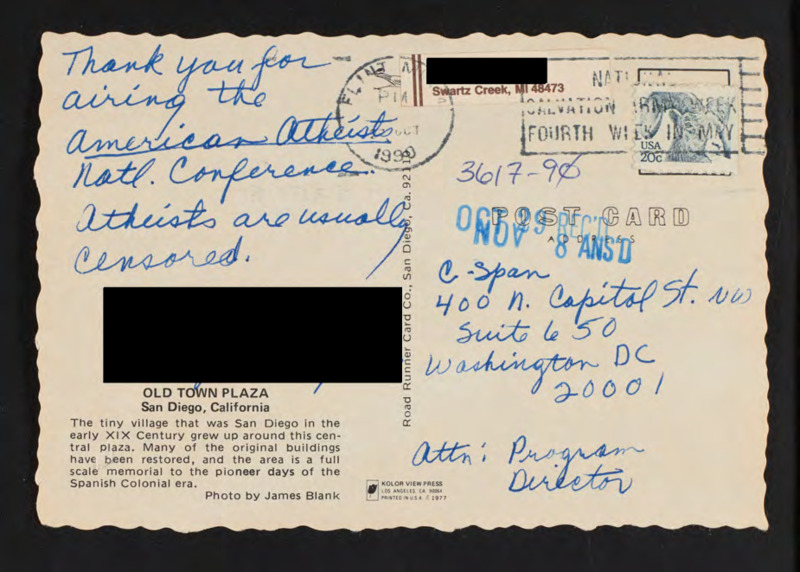 Thank you for
airing the
American Atheists
Natl. Conference.
Atheists are usually
censored.
OLD TOWN PLAZA
San Diego, California
The tiny village that was San Diego in the
early XIX Century grew up around this cen-
tral plaza. Many of the original buildings
have been restored, and the area is a full
scale memorial to the pioneer days of the
Spanish Colonial era.
Photo by James Blank
Road Runner Card Co., San Diego, Ca. 92110
KOLOR VIEW PRESS
LOS ANGELES, CA.
PRINTED IN U.S.A. © 1977
FLINT
PM
OCT
1990
Swartz Creek, MI 48473
NATIONAL
SALVATION ARMY WEEK
FOURTH WEEK IN MAY
USA
20c
3617-90
POST CARD
ADDRESS
OCT 29 REC'D
NOV 8 ANS'D
C-Span
400 N. Capitol St. NW
Suite 650
Washington DC
20001
Attn: Program
Director